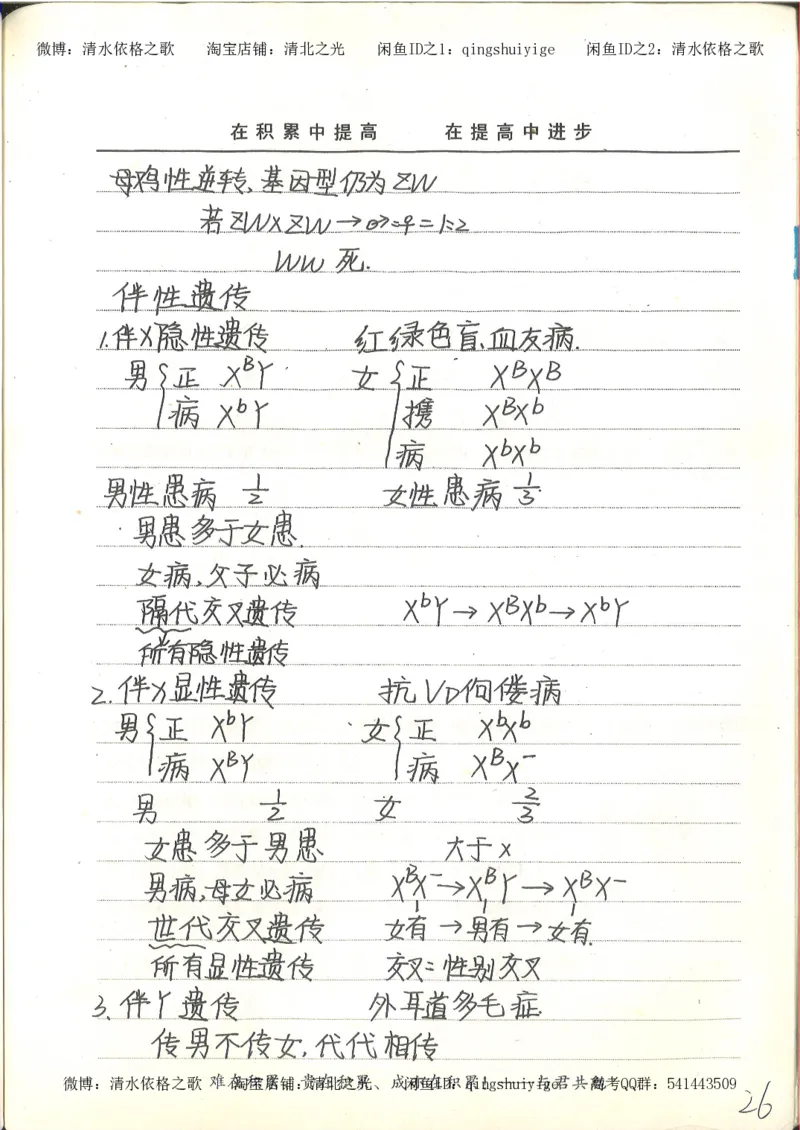 微博：清水依格之歌 淘宝店铺：清北之光 闲鱼ID之1：qingshuiyige 闲鱼ID之2：清水依格之歌
在积累中提高 在提高中进步
母鸡性逆转，基因型仍为ZW
若ZW×ZW→♂:♀=1:2
WW 死.
伴性遗传
1.伴X隐性遗传 红绿色盲、血友病.
男{正 XᴮY 女{正 XᴮXᴮ
病 XᵇY 携 XᴮXᵇ
病 XᵇXᵇ
男性患病 1/2 女性患病 1/3
男患多于女患.
女病，父子必病
隔代交叉遗传 XᵇY→XᴮXᵇ→XᵇY
所有隐性遗传
2.伴X显性遗传 抗VD佝偻病
男{正 XᵇY 女{正 XᵇXᵇ
病 XᴮY 病 XᴮX⁻
男 1/2 女 2/3
女患多于男患 大于x
男病，母女必病 XᴮX⁻→XᴮY→XᴮX⁻
世代交叉遗传 女有→男有→女有.
所有显性遗传 交叉=性别交叉
3.伴Y遗传 外耳道多毛症.
传男不传女，代代相传
微博：清水依格之歌 淘宝店铺：清北之光 闲鱼ID：qingshuiyige 高考QQ群：541443509
26